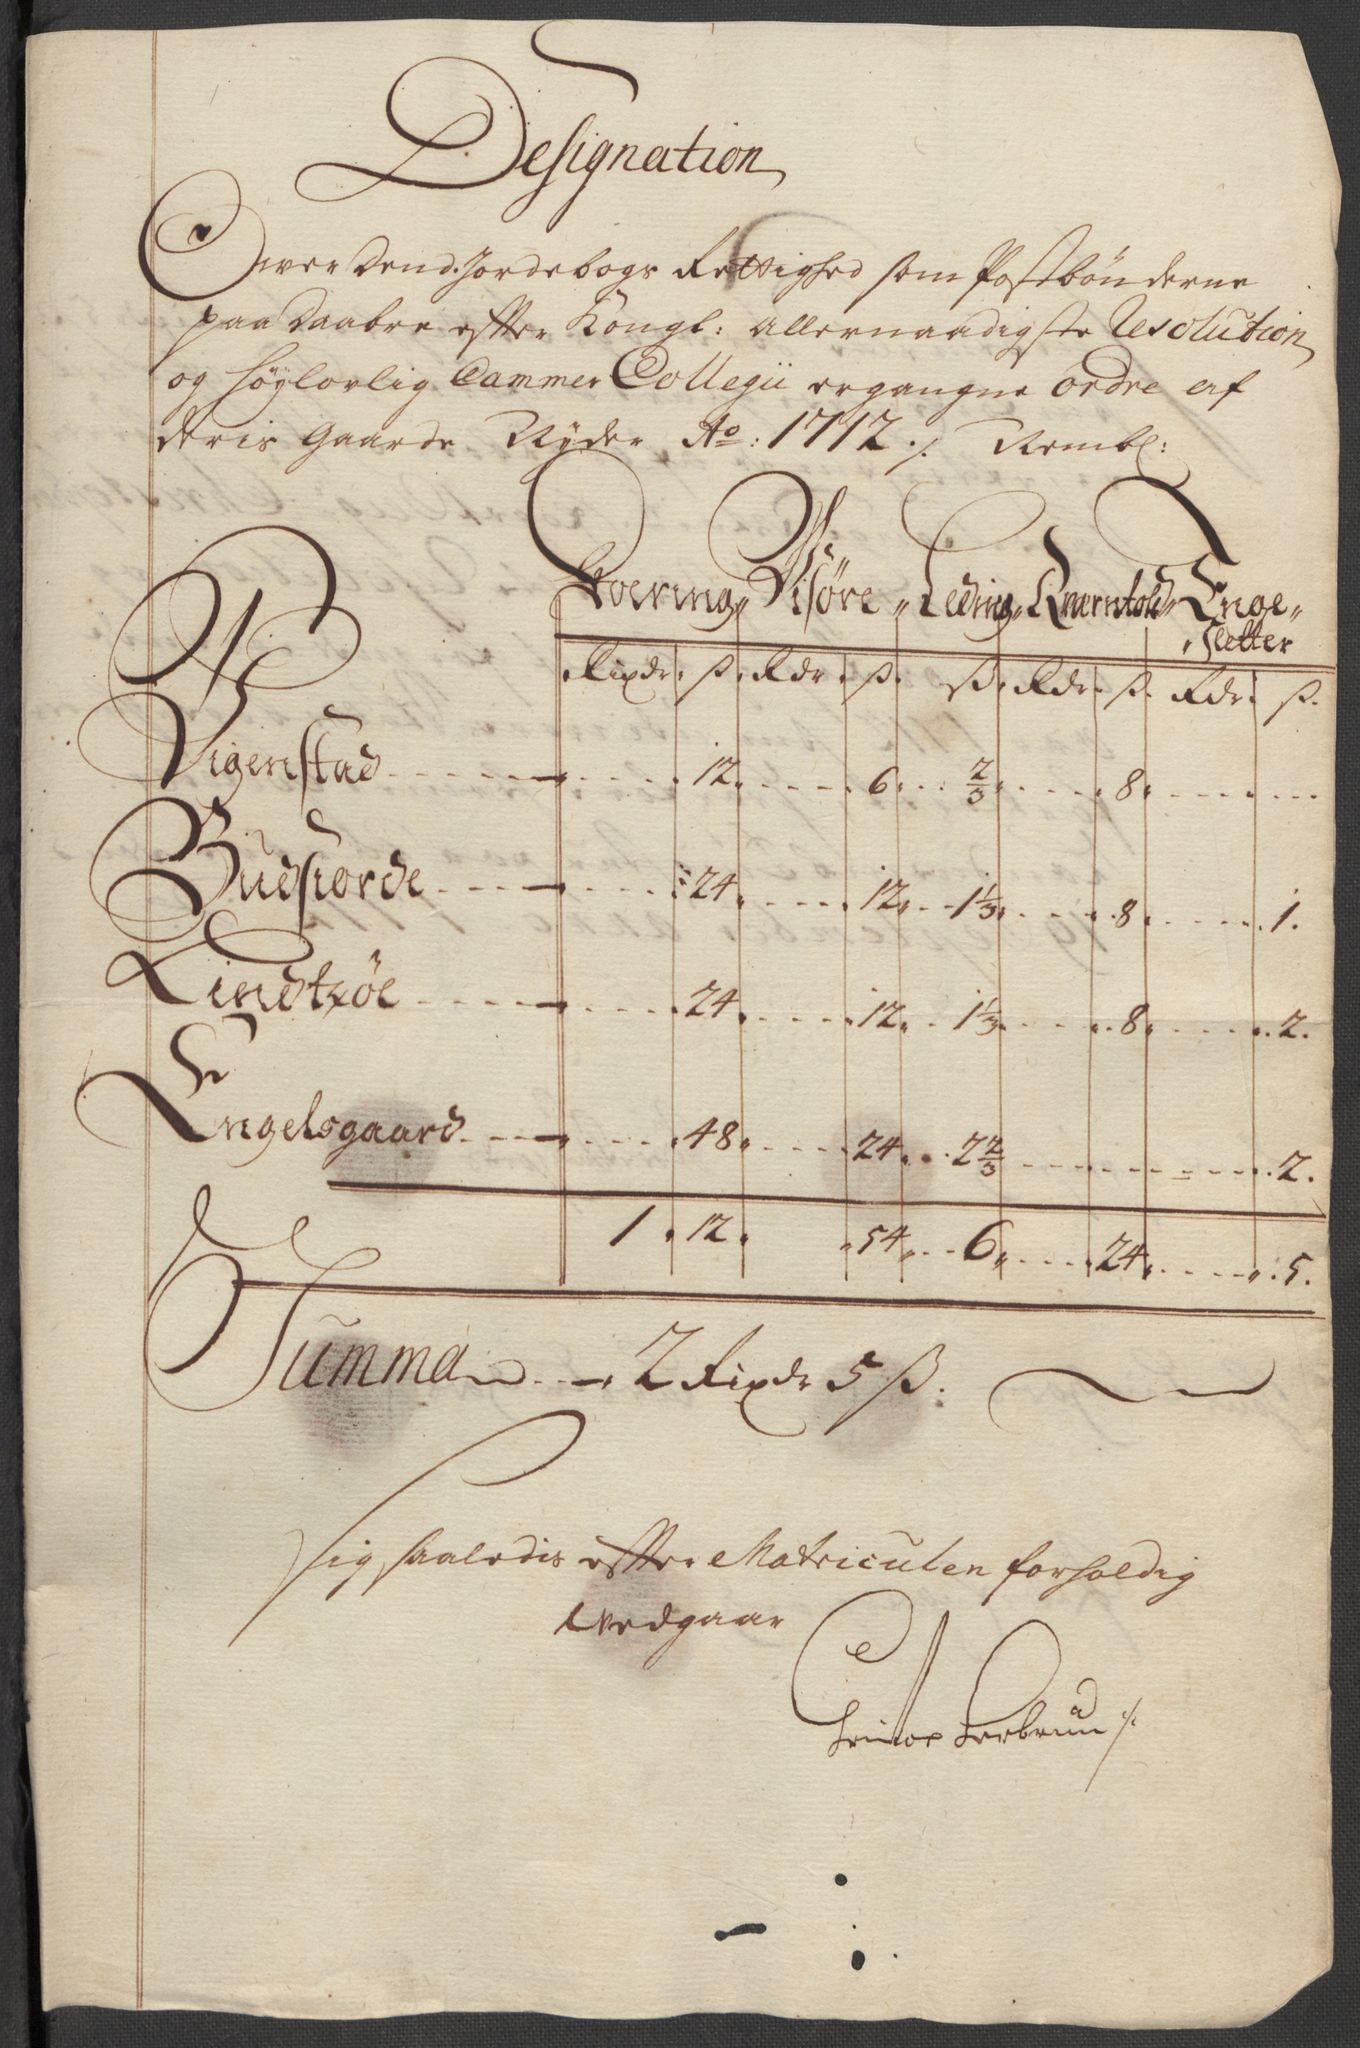 Designation
Over Dend Jordebogs Rettighed som Postbønderne
paa Daabre efter Kongl: allernaadigste Resolution
og høylovlig Cammer Collegii ergangne ordre af
deris Gaarde Nyder Ao: 1712 ./. Nembl:
Foering " Wisøre " Leding " Qverntold " Enge "
" Sletter
Rixdr. ß. Rdr. ß. ß. Rdr. ß. Rdr. ß.
Vigenstad 12. 6. 2/3. 8.
Budsiorde 24. 12. 1 1/3. 8. 1.
Lindsøe 24. 12. 1 1/3. 8. 2.
Engelsgaard 48. 24. 2 2/3. 2.
1. 12. 54. 6. 24. 5.
Summa 2 Rixdr 5 ß.
Sig saaledis efter Matriculen forholdig
Vedgaar